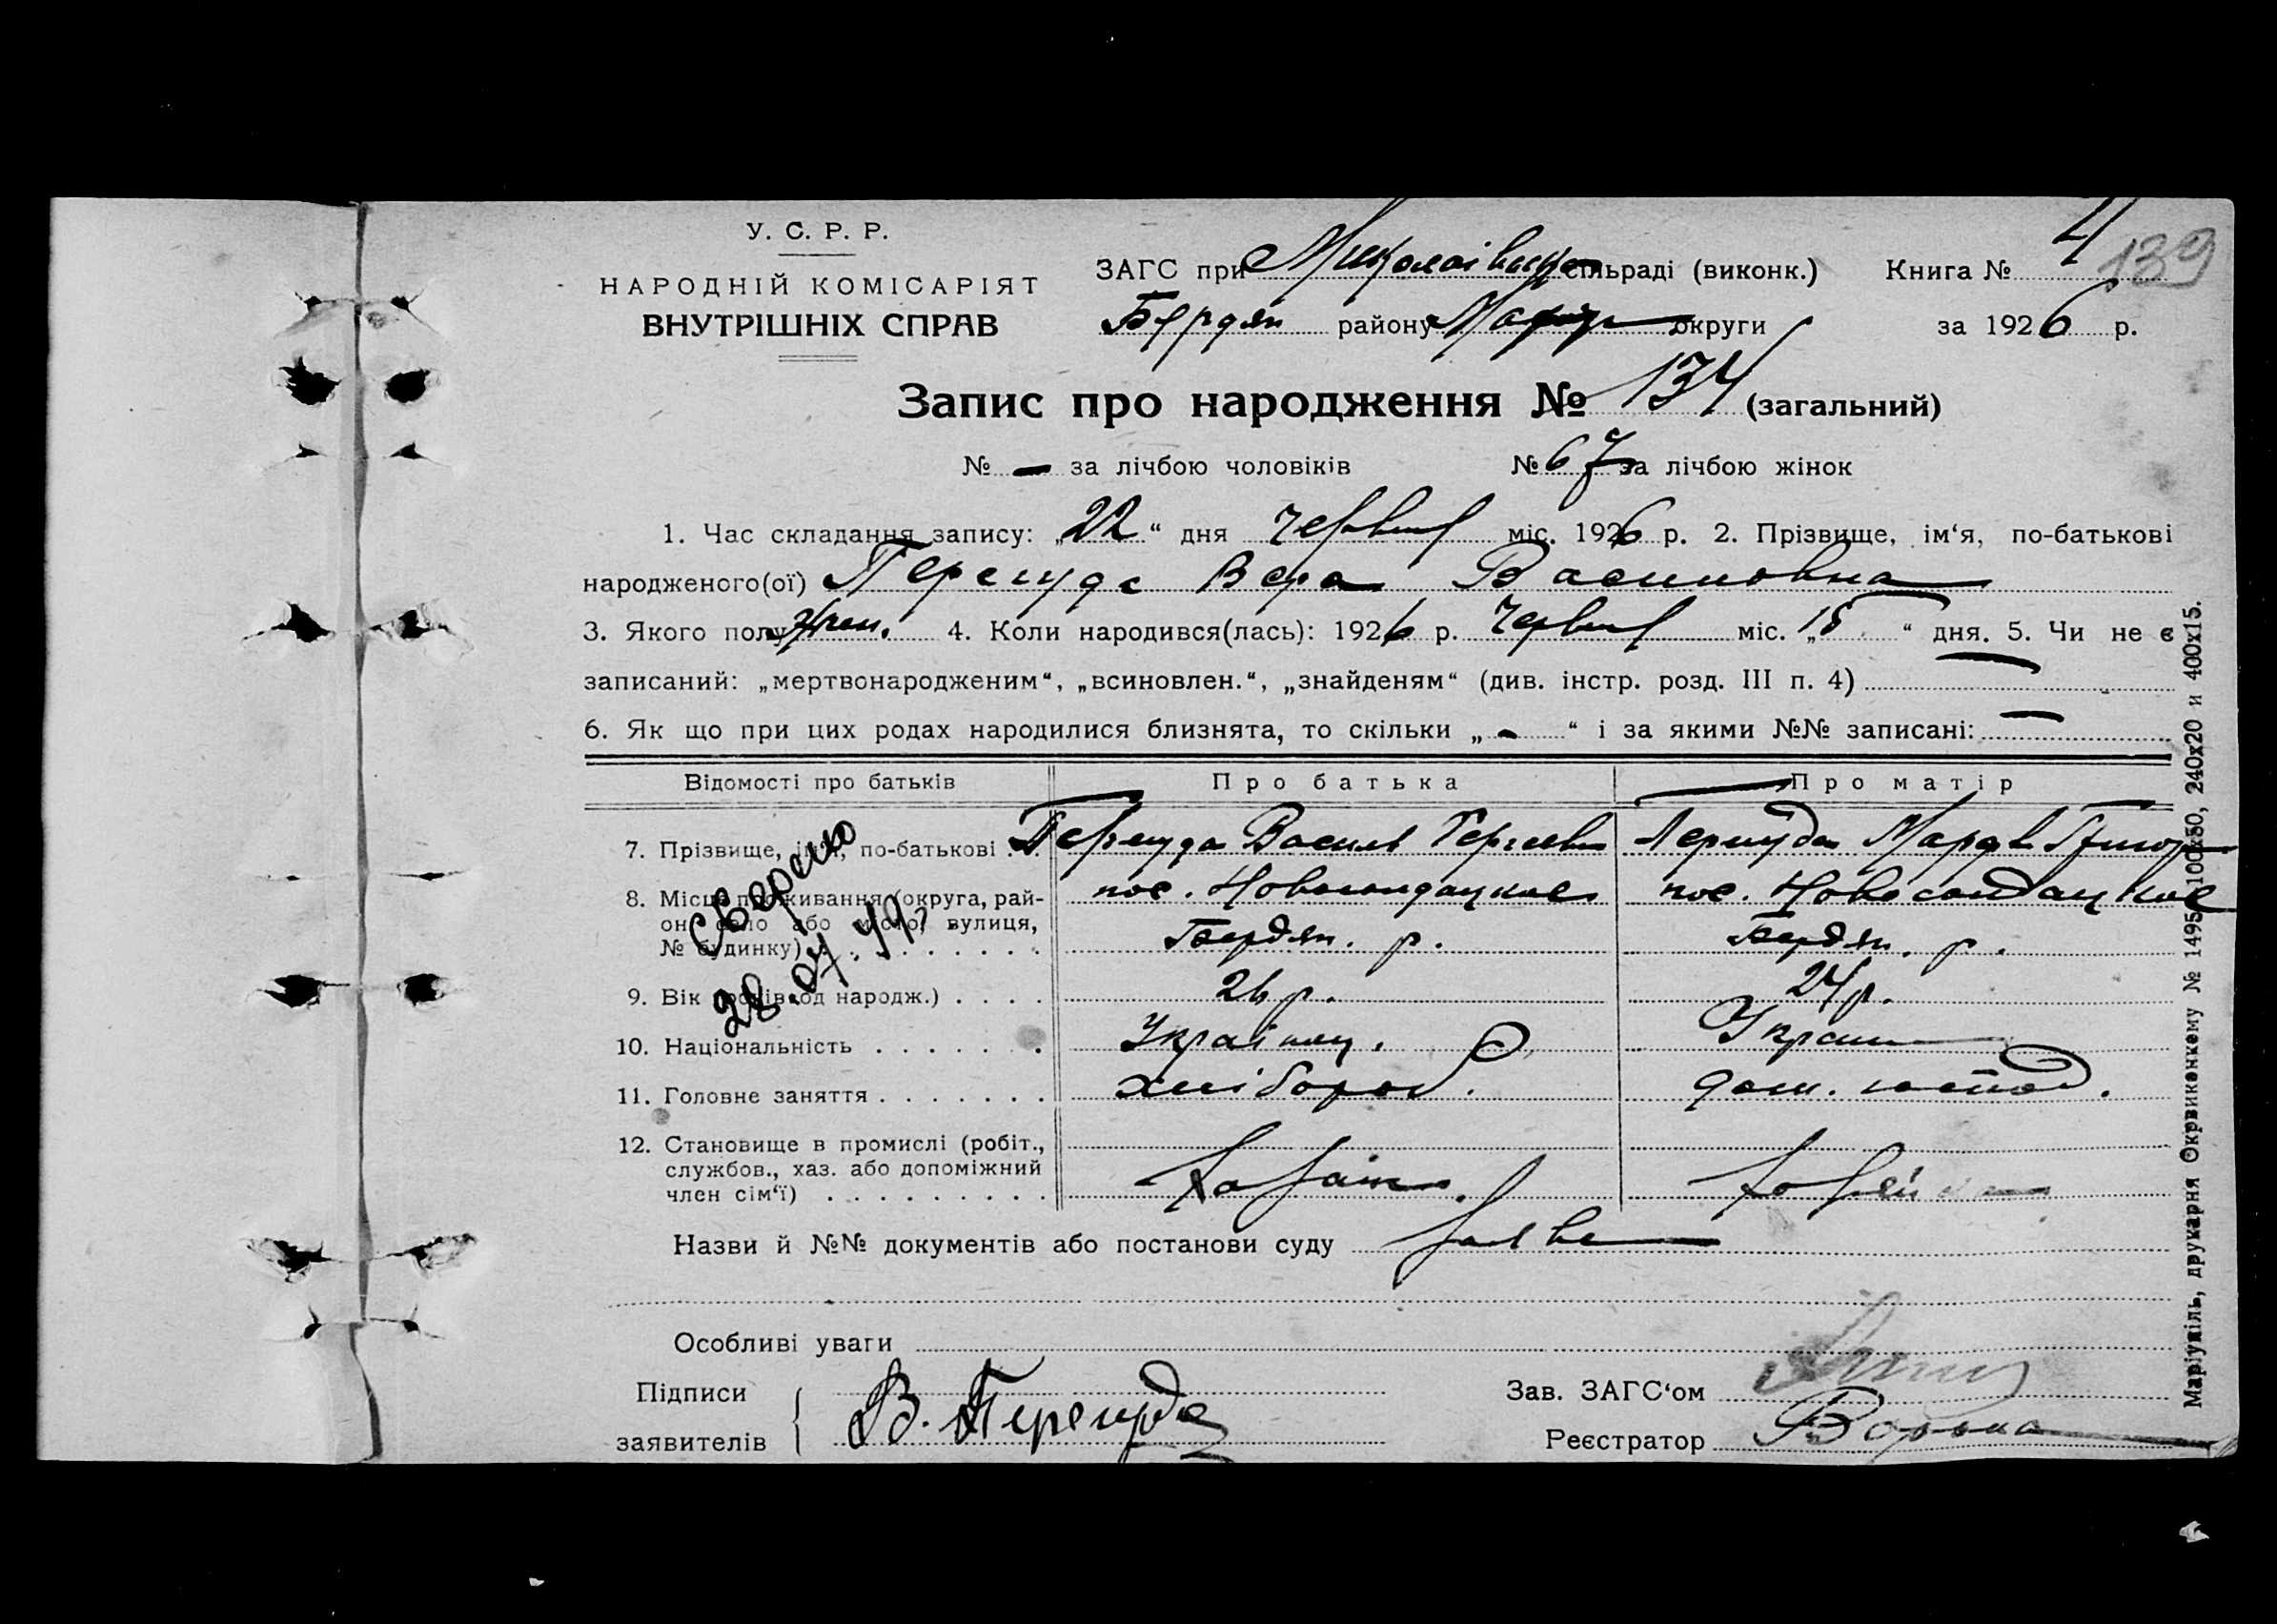 У. С. Р. Р.
НАРОДНІЙ КОМІСАРІЯТ
ВНУТРІШНІХ СПРАВ
ЗАГС при Миколаівській сільраді (виконк.) Книга № 4 139
Бердян району округи за 1926 р.
Запис про народження № 134 (загальний)
№ — за лічбою чоловіків № 67 за лічбою жінок
1. Час складання запису: „22“ дня червня міс. 1926 р. 2. Прізвище, ім‘я, по-батькові
народженого(ої) Перегуда Вера Василовна
3. Якого полу жен. 4. Коли народився(лась): 1926 р. червня міс. „15“ дня. 5. Чи не є
записаний: „мертвонародженим“, „всиновлен.“, „знайденям“ (див. інстр. розд. III п. 4) —
6. Як що при цих родах народилися близнята, то скільки „-“ і за якими №№ записані: —
Відомості про батьків Про батька Про матір
7. Прізвище, ім‘я, по-батькові Перегуда Василь Сергеевич Перегуда
8. Місце проживання (округа, рай- пос.
он, село або місто, вулиця, Бердян. р. Бердян. р.
№ будинку)
9. Вік (років од народж.) 26 р. 24 р.
10. Національність Украінец. Украин
11. Головне заняття хлібороб. дом. господ.
12. Становище в промислі (робіт.,
службов., хаз. або допоміжний
член сім‘ї) Хазяін. Хазяйка
Сверено
28.04.49г
Назви й №№ документів або постанови суду
Особливі уваги
Підписи
заявителів В. Перегуда
Зав. ЗАГС‘ом
Реєстратор
Маріупіль, друкарня Окрвиконкему № 1495 100х50, 240х20 и 400х15.